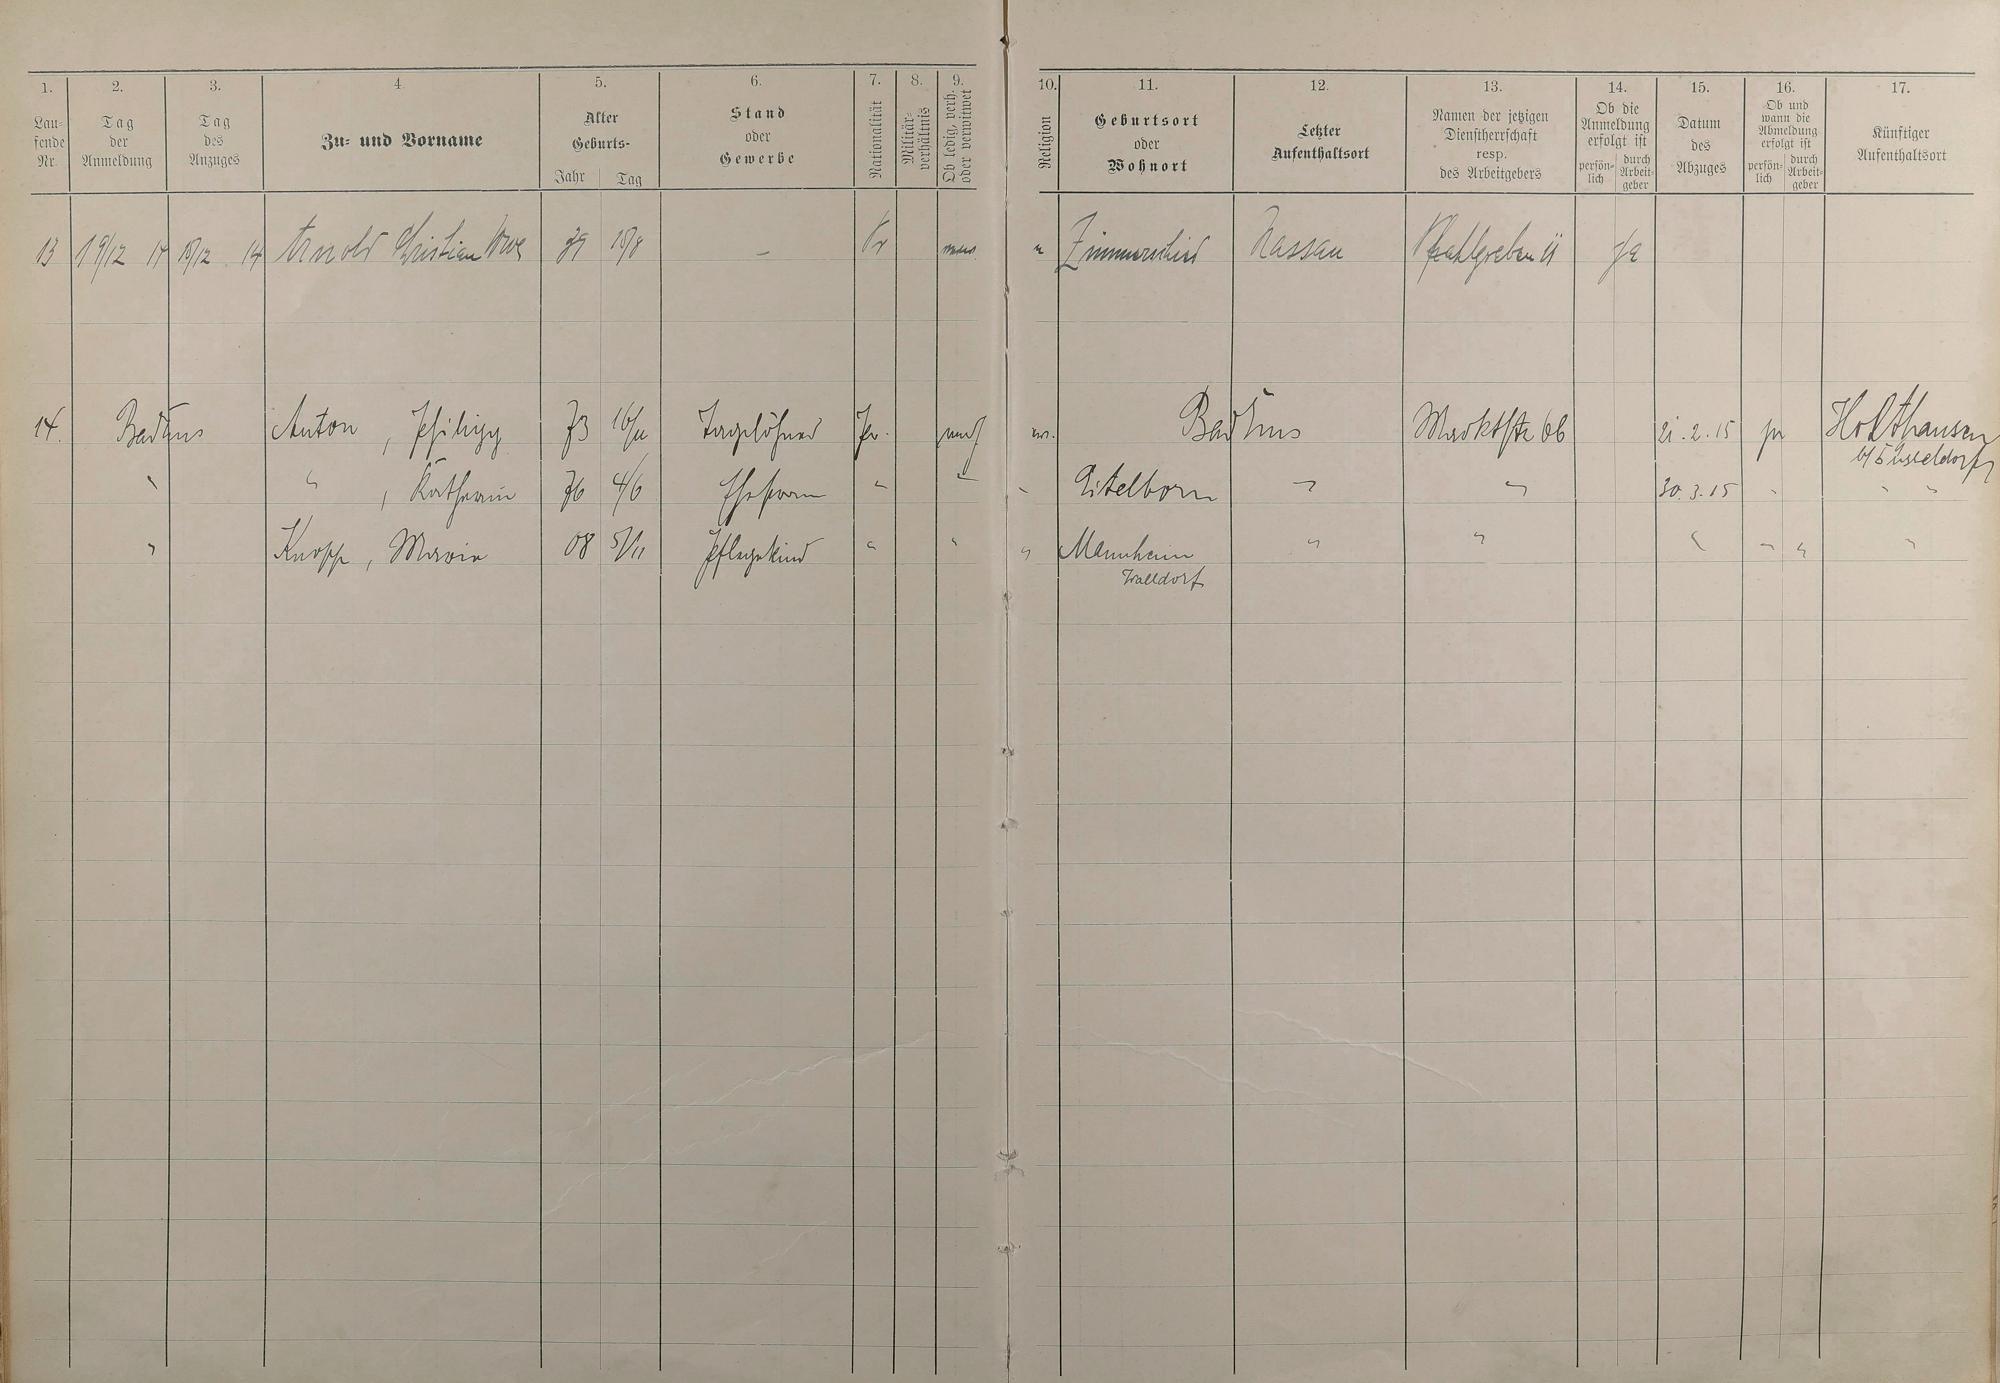 1. 2. 3. 4. 5. 6. 7. 8. 9. 10. 11. 12. 13. 14. 15. 16. 17.
Lau-
fende
Nr.
Tag
der
Anmeldung
Tag
des
Anzuges
Zu- und Vorname
Alter
Geburts-
Jahr Tag
Stand
oder
Gewerbe
Nationalität
Militär-
verhältnis
Ob ledig, verh.
oder verwitwet
Religion
Geburtsort
oder
Wohnort
Letzter
Aufenthaltsort
Namen der jetzigen
Dienstherrschaft
resp.
des Arbeitgebers
Ob die
Anmeldung
erfolgt ist
persön-
lich
durch
Arbeit-
geber
Datum
des
Abzuges
Ob und
wann die
Abmeldung
erfolgt ist
persön-
lich
durch
Arbeit-
geber
Künftiger
Aufenthaltsort
13 19/12 14 18/12 14 Arnold Christian Wwe 39 18/8 – Pr " Zimmerschied Nassau Pfahlgraben 11 ja
14. Bad Ems Anton, Philipp 73 16/11 Taglöhner Pr. Bad Ems Marktstr 66 21.2.15 Holthausen
b/Düsseldorf
" " , Katharin 76 4/6 Ehefrau " " " Eitelborn " " 30.3.15 " " "
" Knopp, Maria 08 5/11 Pflegekind " " " Mannheim " " " " " "
Walldorf